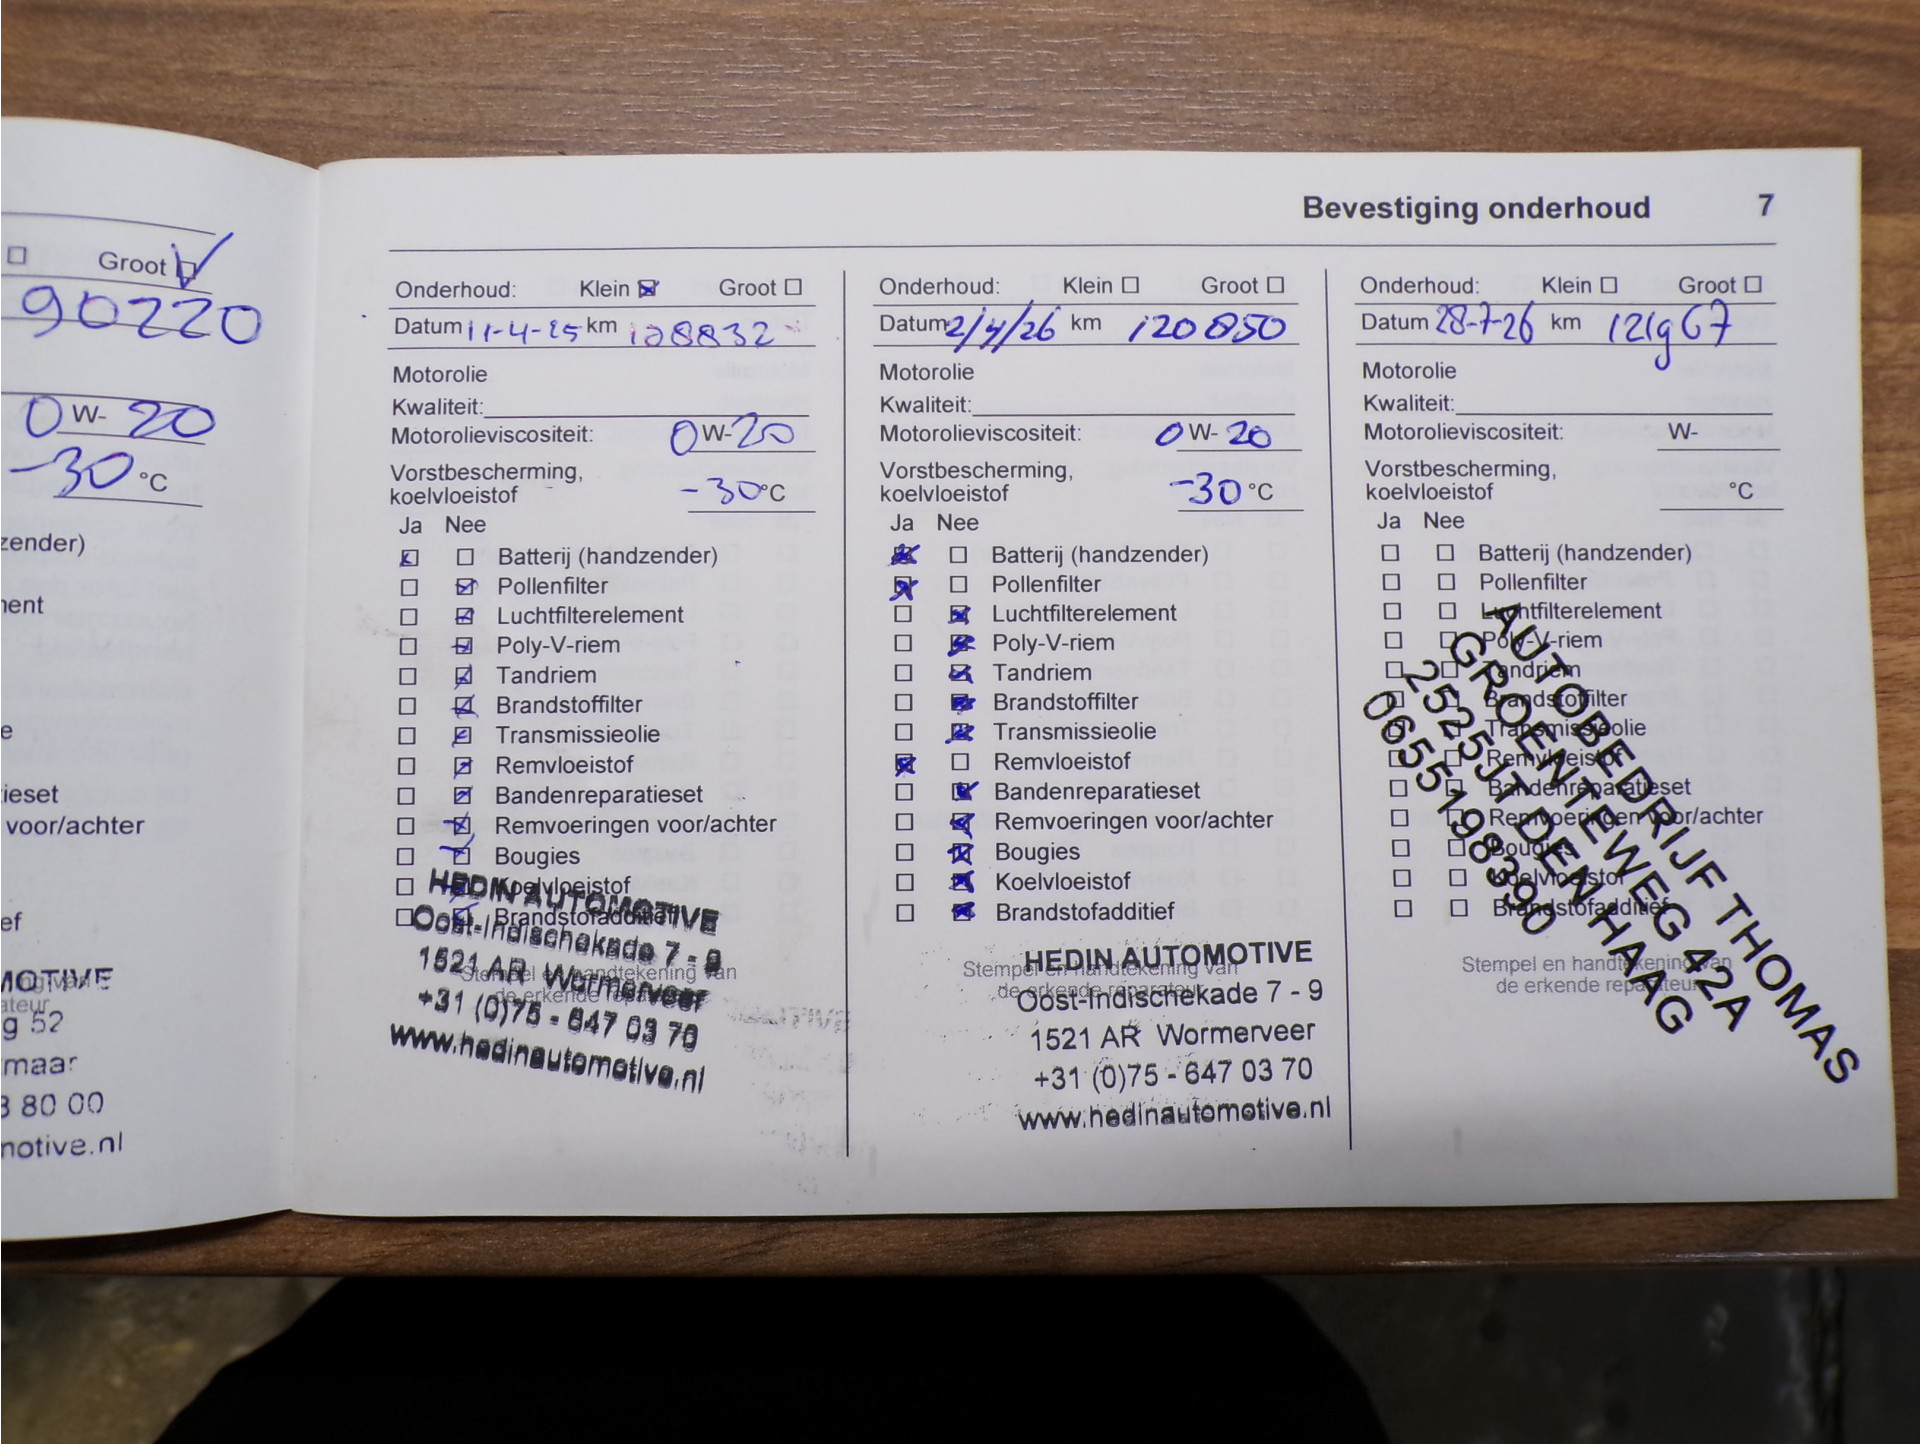 Groot
90220
0 W- 20
-30 °C
zender)
voor/achter
g 52
maar
80 00
Bevestiging onderhoud 7
Onderhoud: Klein Groot
Datum 11-4-25 km 108832
Motorolie
Kwaliteit:
Motorolieviscositeit: 0 W-20
Vorstbescherming,
koelvloeistof -30°C
Ja Nee
Batterij (handzender)
Pollenfilter
Luchtfilterelement
Poly-V-riem
Tandriem
Brandstoffilter
Transmissieolie
Remvloeistof
Bandenreparatieset
Remvoeringen voor/achter
Bougies
Koelvloeistof
Brandstofadditief
Stempel en handtekening van
de erkende reparateur
HEDIN AUTOMOTIVE
Oost-Indischekade 7 - 9
1521 AR Wormerveer
+31 (0)75 - 647 03 70
www.hedinautomotive.nl
Onderhoud: Klein Groot
Datum 2/4/26 km 120850
Motorolie
Kwaliteit:
Motorolieviscositeit: 0 W- 20
Vorstbescherming,
koelvloeistof -30 °C
Ja Nee
Batterij (handzender)
Pollenfilter
Luchtfilterelement
Poly-V-riem
Tandriem
Brandstoffilter
Transmissieolie
Remvloeistof
Bandenreparatieset
Remvoeringen voor/achter
Bougies
Koelvloeistof
Brandstofadditief
Stempel en handtekening van
de erkende reparateur
HEDIN AUTOMOTIVE
Oost-Indischekade 7 - 9
1521 AR Wormerveer
+31 (0)75 - 647 03 70
www.hedinautomotive.nl
Onderhoud: Klein Groot
Datum 28-7-26 km 121967
Motorolie
Kwaliteit:
Motorolieviscositeit: W-
Vorstbescherming,
koelvloeistof °C
Ja Nee
Batterij (handzender)
Pollenfilter
Luchtfilterelement
Poly-V-riem
Tandriem
Brandstoffilter
Transmissieolie
Remvloeistof
Bandenreparatieset
Remvoeringen voor/achter
Bougies
Koelvloeistof
Brandstofadditief
Stempel en handtekening van
de erkende reparateur
AUTOBEDRIJF THOMAS
GROENTEWEG 42A
2525JT DEN HAAG
0655198390